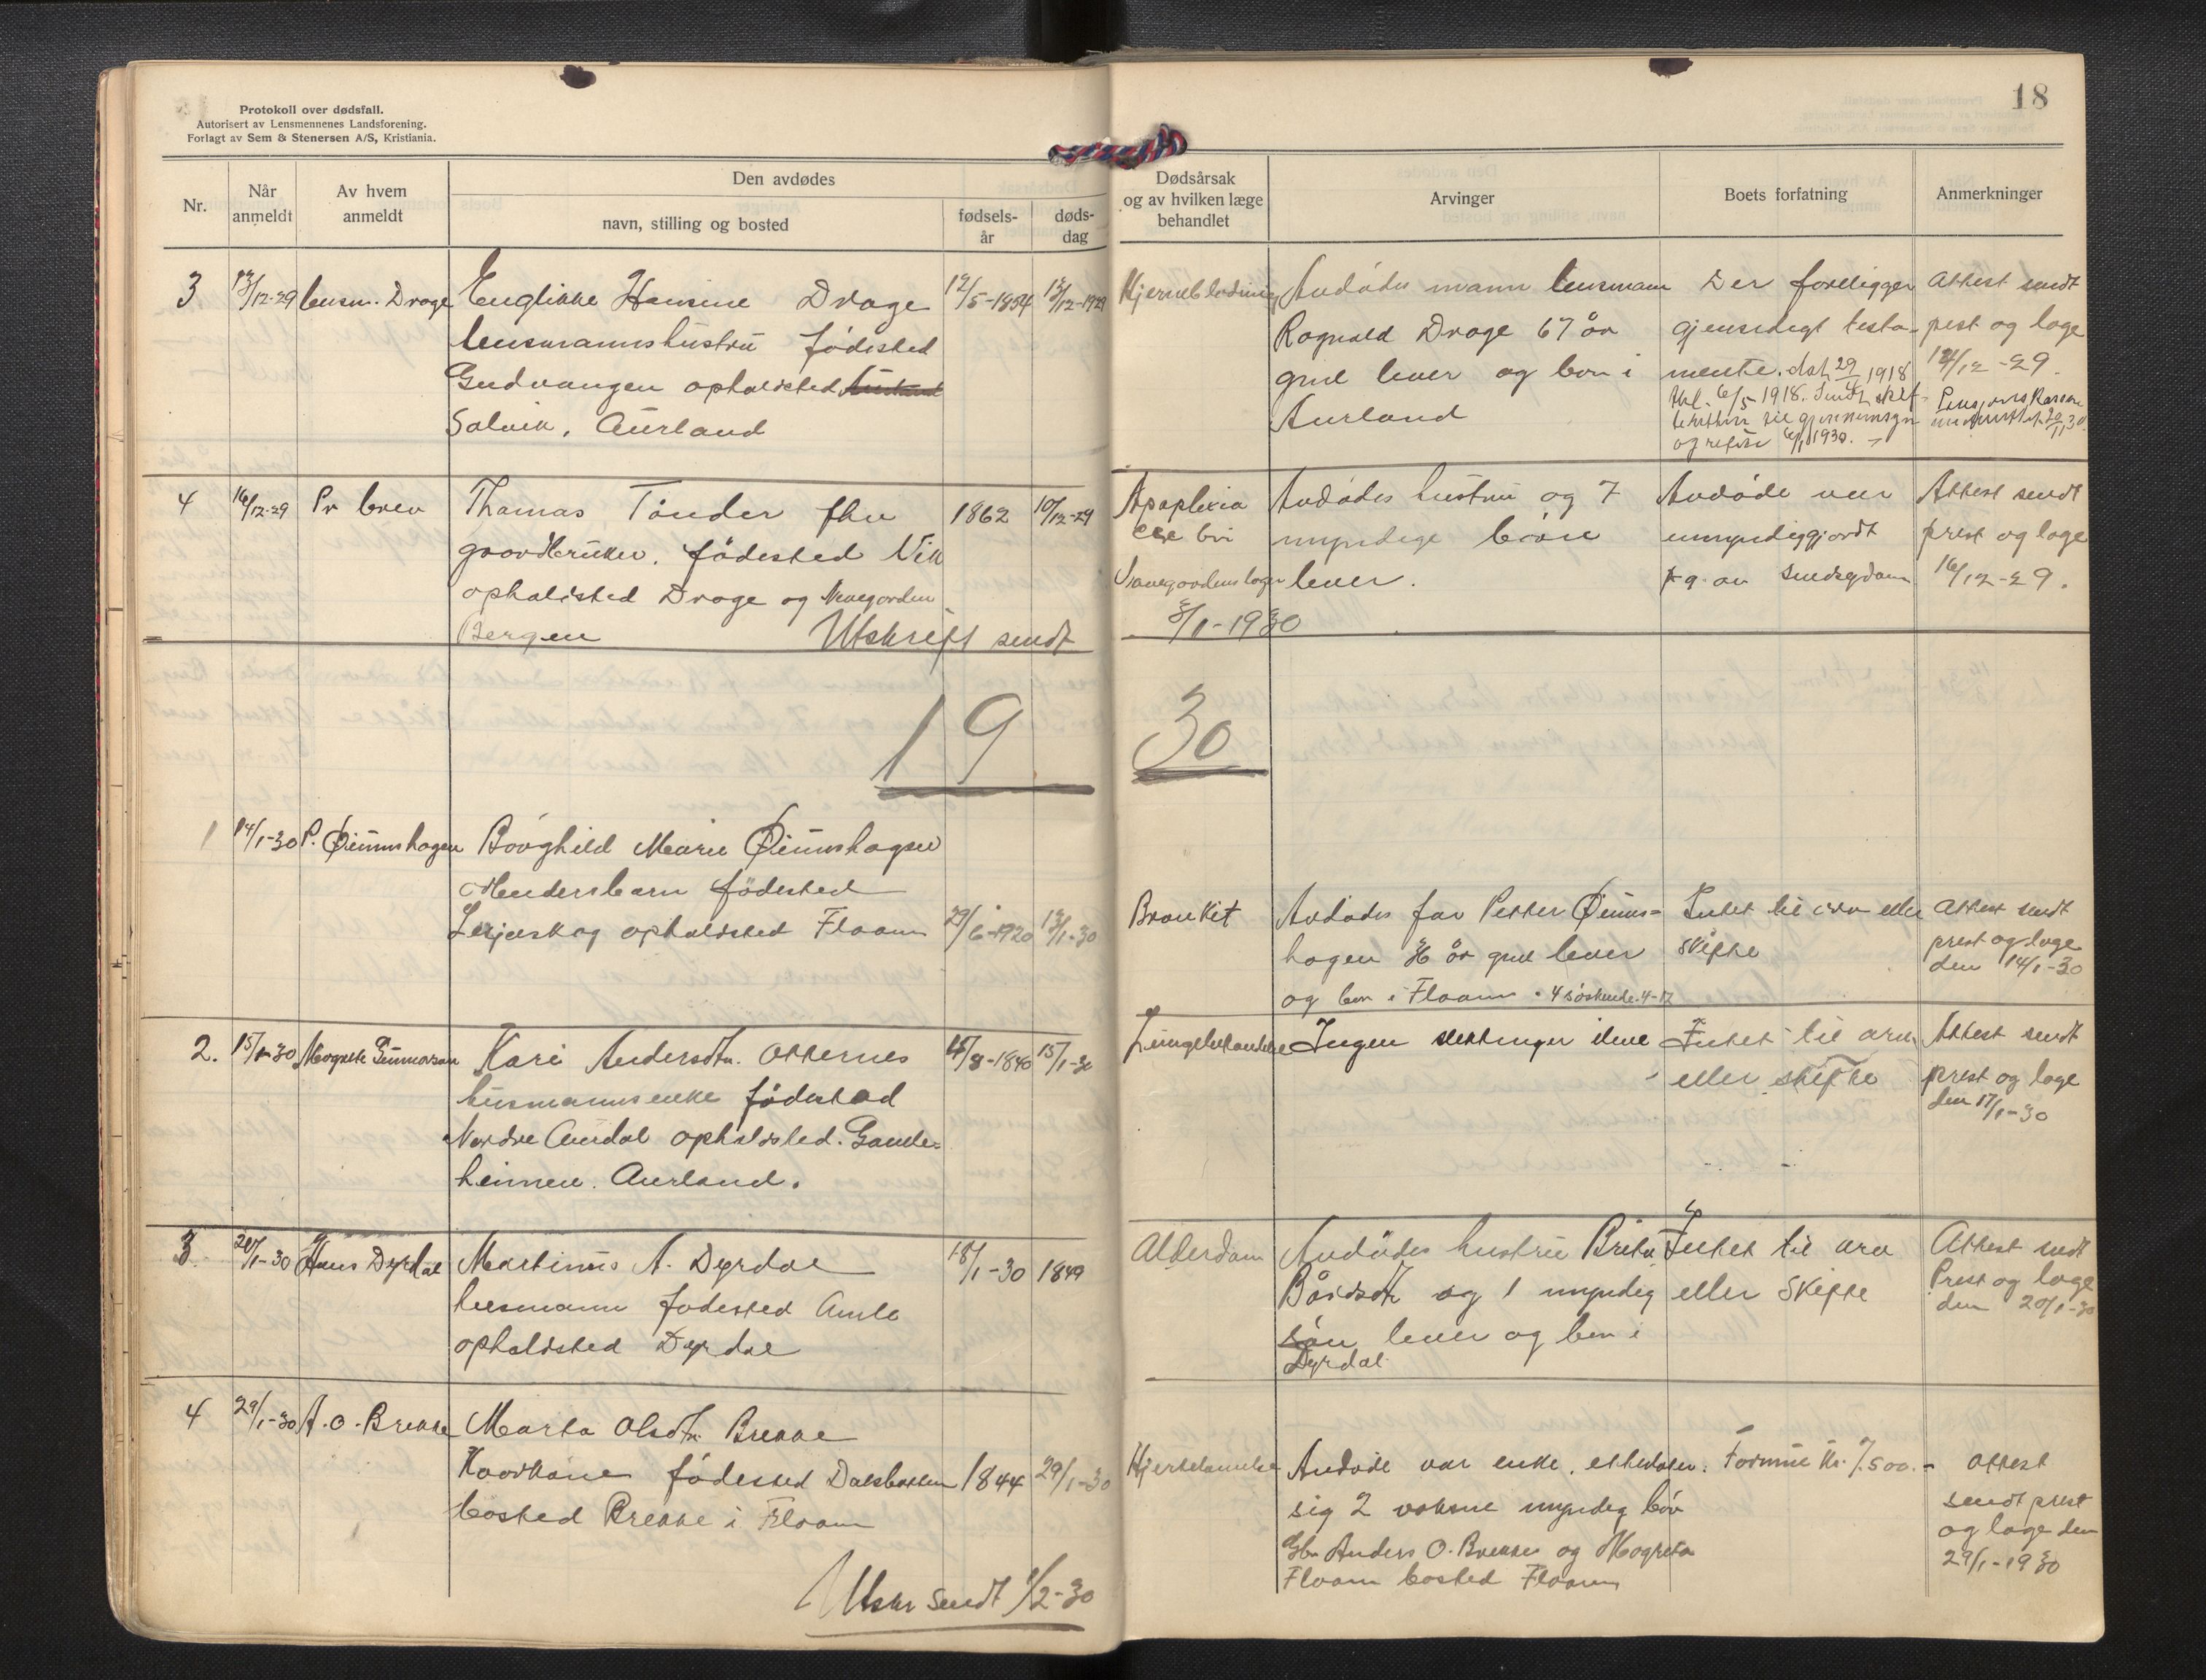 Protokoll over dødsfall.
Autorisert av Lensmennenes Landsforening.
Forlagt av Sem & Stenersen A/S, Kristiania.
18
Nr.
Når
anmeldt
Av hvem
anmeldt
Den avdødes
navn, stilling og bosted
fødsels-
år
døds-
dag
Dødsårsak
og av hvilken læge
behandlet
Arvinger
Boets forfatning
Anmerkninger
3
13/12-29
lensm. Drage
Englikke Hansine Drage
lensmannshustru fødested
Gudvangen opholdsted
Solvik, Aurland
12/5-1854
13/12-1929
Hjerneblødning
Avdødes mann lensmann
Ragnvald Drage 67 år
gml lever og bor i
Aurland
Der foreligger
gjensidigt testa-
mente. dat 29/4 1918
tkl. 6/5 1918. Sendt skif-
og refusi 6/1 1930.
Attest sendt
prest og læge
14/12-29.
4
16/12-29
Pr brev
Thomas Tønder fhv
gaardbruker. fødested Vik
opholdsted Drage og Nevegarden
Bergen Utskrift sendt
1862
10/12-29
Apoplexia
cerebri
3/1-1930
Avdødes hustru og 7
myndige børn
lever.
Avdøde var
umyndiggjordt
p g. av sindsygdom
Attest sendt
prest og læge
16/12-29.
19
30
1
14/1-30
P. Øiumshagen
Borghild Marie Øiumshagen
Mendersbarn fødested
Lesjaskog opholdsted Flaam
29/6-1920
13/1-30
Bronkit
Avdødes far Petter Øiums-
hagen år gml lever
og bor i Flaam. 4 søskende. 4-17
Intet til arv eller
skifte
Attest sendt
prest og læge
den 14/1-30
2.
15/1-30
Magrete Gunnarson
Kari Andersdtr. Otternes
husmannsenke fødested
Nordre Aurdal opholdsted. Gamle-
heimen. Aurland.
15/1-30
Lungebetændelse
Ingen slektninger ilive
Intet til arv
eller skifte
Attest sendt
prest og læge
den 17/1-30
3
20/1-30
Hans Dyrdal
Martinus A. Dyrdal
husmann fødested Aurla
opholdsted Dyrdal
18/1-30
1849
Alderdom
Avdødes hustru Brita
Bårdsdtr og 1 myndig
søn lever og bor i
Dyrdal.
Intet til arv
eller skifte
Attest sendt
Prest og læge
den 20/1-30
4
29/1-30
A. O. Brekke
Marta Olsdtr. Brekke
Kaarkone fødested Dalsbotten
bosted Brekke i Flaam
1844
29/1-30
Hjertelamelse
Avdøde var enke. etterlater
sig 2 voksne myndig bør
Gbr Anders O. Brekke og Magreta
Flaam bosted Flaam
Formue kr. 7.500.-
Attest
sendt prest
og læge den
29/1-1930
Utskr sendt 1/2-30